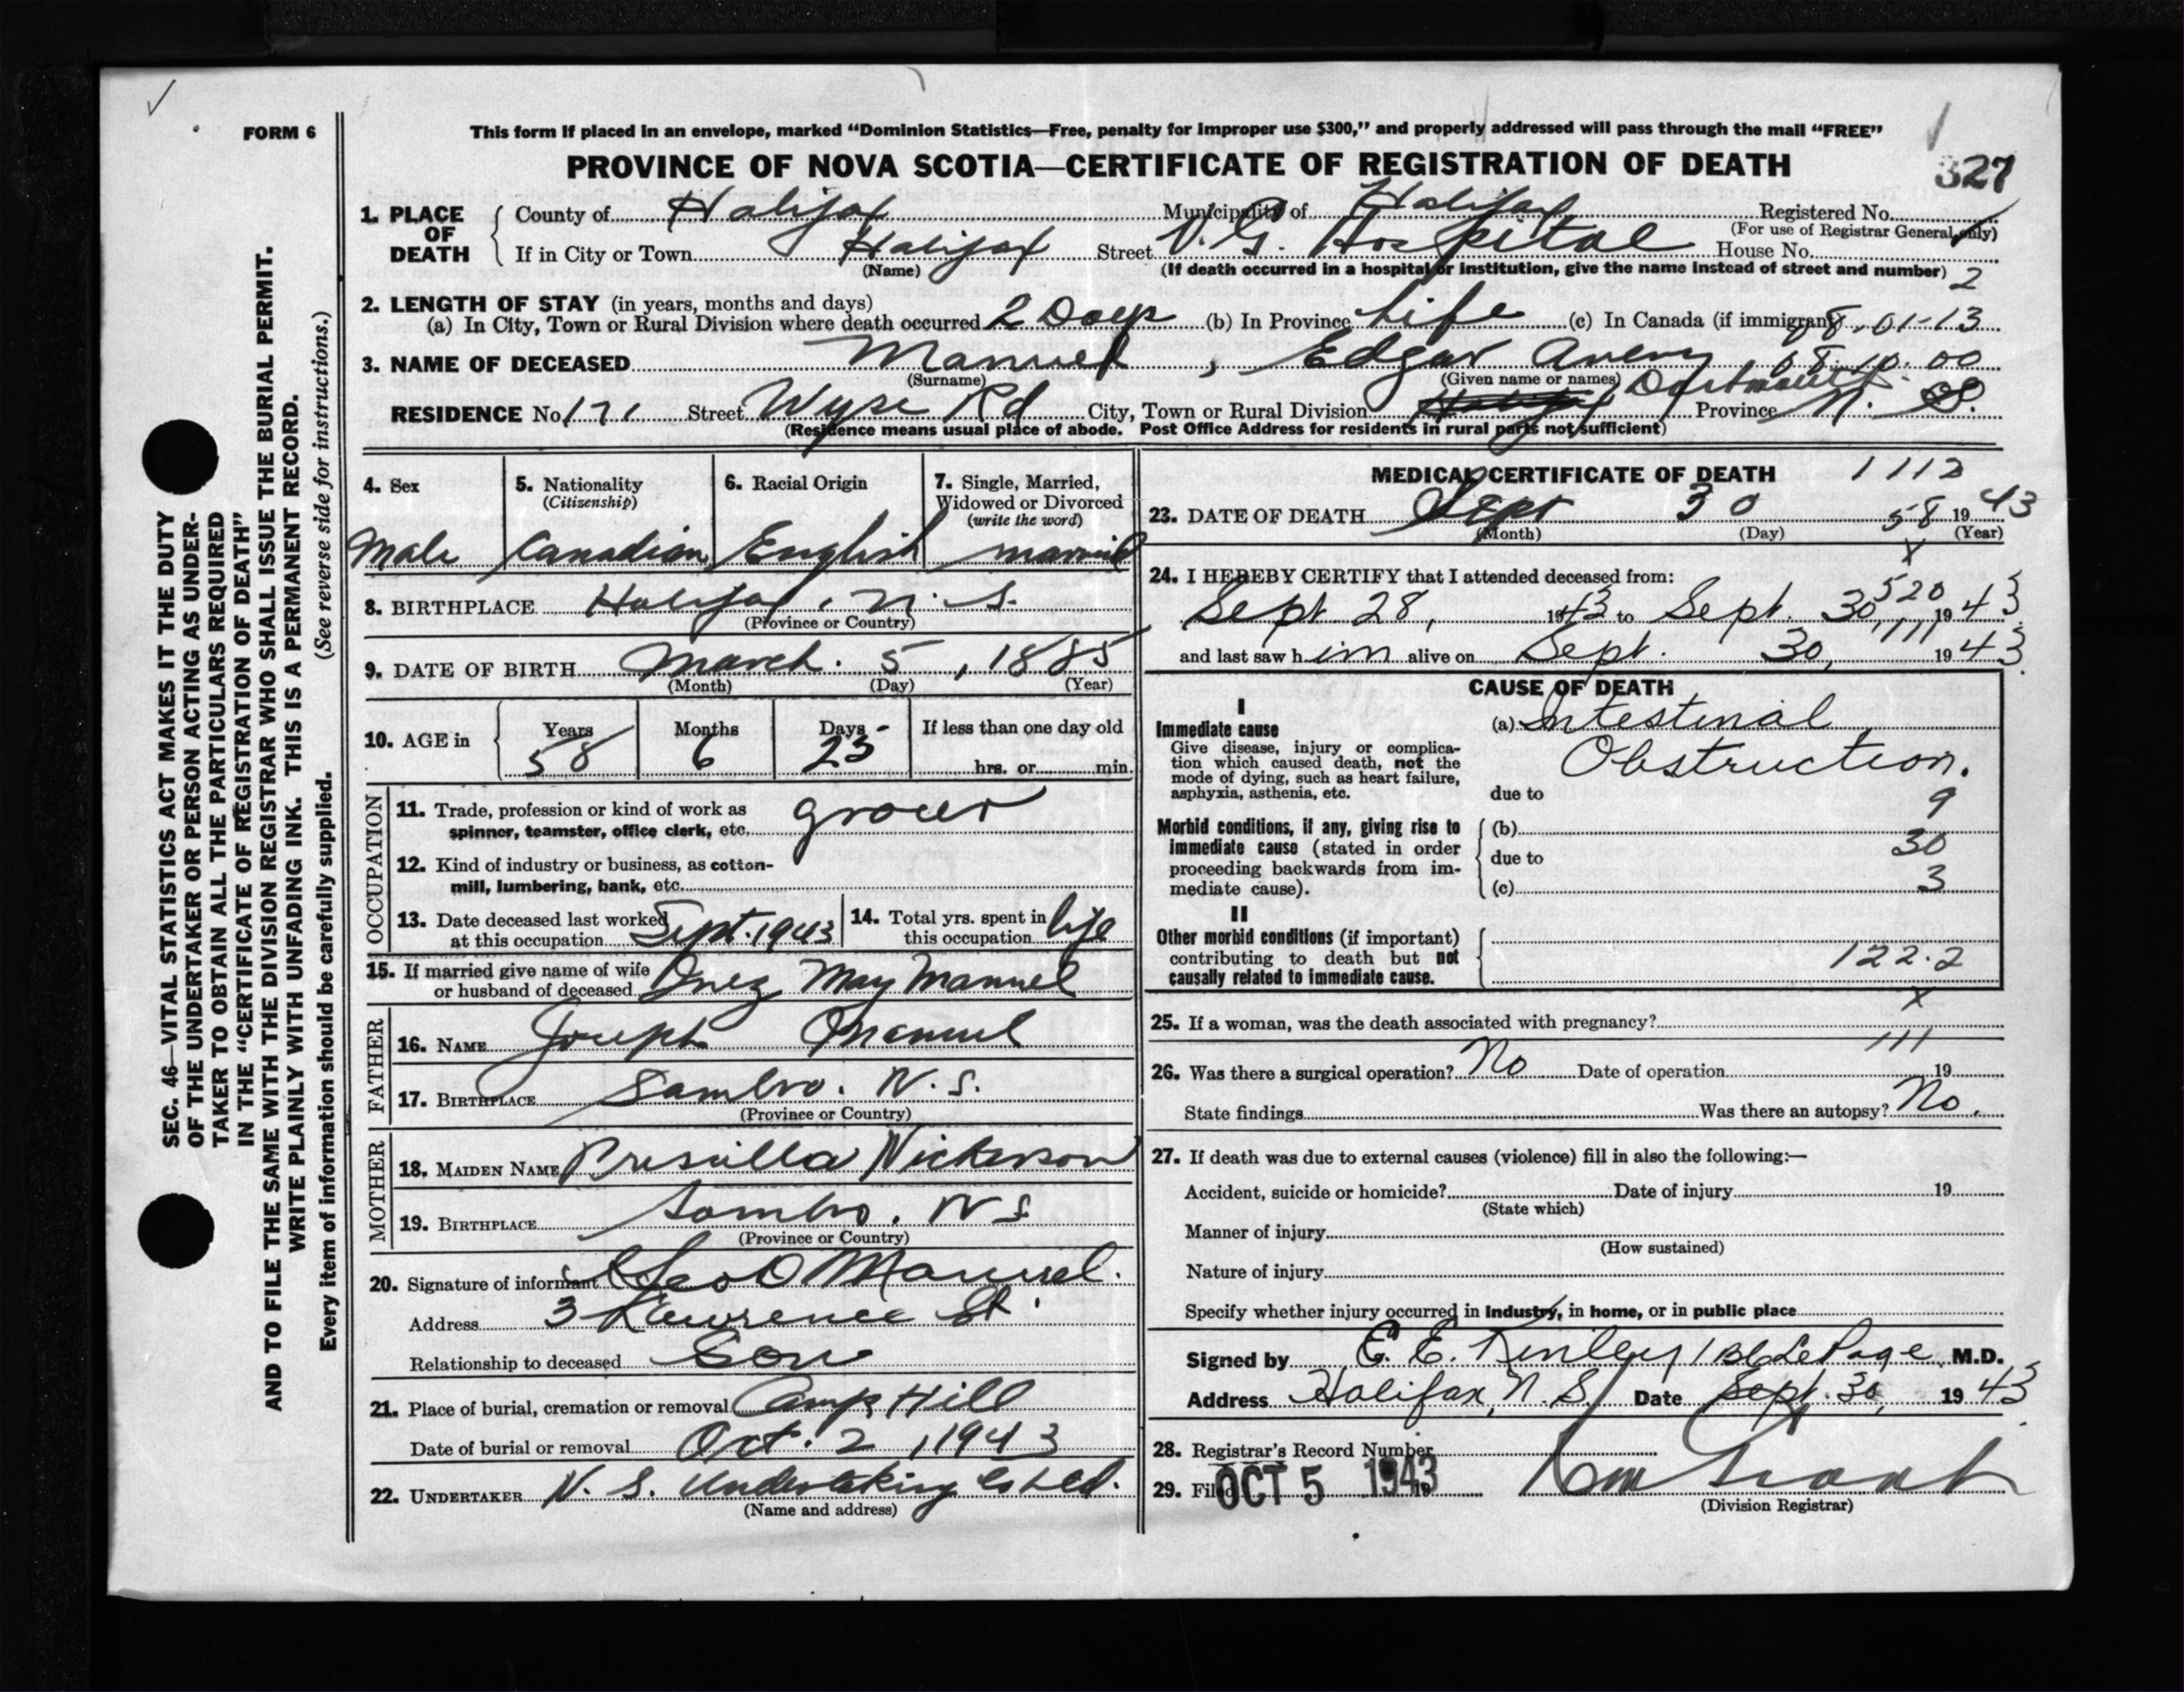 FORM 6
This form if placed in an envelope, marked “Dominion Statistics—Free, penalty for improper use $300,” and properly addressed will pass through the mail “FREE”
PROVINCE OF NOVA SCOTIA—CERTIFICATE OF REGISTRATION OF DEATH
327
1. PLACE OF DEATH
County of Halifax Municipality of Halifax Registered No.
(For use of Registrar General only)
If in City or Town Halifax Street V. G. Hospital House No.
(Name) (If death occurred in a hospital or institution, give the name instead of street and number) 2
2. LENGTH OF STAY (in years, months and days)
(a) In City, Town or Rural Division where death occurred 2 Days (b) In Province Life (c) In Canada (if immigrant) 01-13
3. NAME OF DECEASED Manuel, Edgar Avery
(Surname) (Given name or names)
RESIDENCE No. 171 Street Wyse Rd City, Town or Rural Division Halifax Dartmouth Province N. S.
(Residence means usual place of abode. Post Office Address for residents in rural parts not sufficient)
SEC. 46—VITAL STATISTICS ACT MAKES IT THE DUTY
OF THE UNDERTAKER OR PERSON ACTING AS UNDER-
TAKER TO OBTAIN ALL THE PARTICULARS REQUIRED
IN THE “CERTIFICATE OF REGISTRATION OF DEATH”
AND TO FILE THE SAME WITH THE DIVISION REGISTRAR WHO SHALL ISSUE THE BURIAL PERMIT.
WRITE PLAINLY WITH UNFADING INK. THIS IS A PERMANENT RECORD.
Every item of information should be carefully supplied. (See reverse side for instructions.)
4. Sex
Male
5. Nationality
(Citizenship)
Canadian
6. Racial Origin
English
7. Single, Married,
Widowed or Divorced
(write the word)
married
8. BIRTHPLACE Halifax, N. S.
(Province or Country)
9. DATE OF BIRTH March. 5, 1885
(Month) (Day) (Year)
10. AGE in
Years Months Days If less than one day old
58 6 25 hrs. or min.
OCCUPATION
11. Trade, profession or kind of work as
spinner, teamster, office clerk, etc. grocer
12. Kind of industry or business, as cotton-
mill, lumbering, bank, etc.
13. Date deceased last worked
at this occupation Sept. 1943
14. Total yrs. spent in
this occupation life
15. If married give name of wife
or husband of deceased Inez May Manuel
FATHER
16. NAME Joseph Manuel
17. BIRTHPLACE Sambro. N. S.
(Province or Country)
MOTHER
18. MAIDEN NAME Prisilla Nickerson
19. BIRTHPLACE Sambro. N S
(Province or Country)
20. Signature of informant Manuel.
Address 3 Lawrence St.
Relationship to deceased Son
21. Place of burial, cremation or removal Camp Hill
Date of burial or removal Oct. 2, 1943
22. UNDERTAKER N. S. Undertaking Co Ltd.
(Name and address)
MEDICAL CERTIFICATE OF DEATH 1112
23. DATE OF DEATH Sept 30 1943
58
(Month) (Day) (Year)
x
24. I HEREBY CERTIFY that I attended deceased from:
520
Sept. 28, 1943 to Sept. 30, 1943
111
and last saw him alive on Sept. 30, 1943
CAUSE OF DEATH
I
Immediate cause
Give disease, injury or complica-
tion which caused death, not the
mode of dying, such as heart failure,
asphyxia, asthenia, etc.
(a) Intestinal
Obstruction.
due to
9
Morbid conditions, if any, giving rise to
immediate cause (stated in order
proceeding backwards from im-
mediate cause).
(b)
30
due to
(c) 3
II
Other morbid conditions (if important)
contributing to death but not
causally related to immediate cause.
122.2
x
25. If a woman, was the death associated with pregnancy?
111
26. Was there a surgical operation? No Date of operation 19
State findings Was there an autopsy? No.
27. If death was due to external causes (violence) fill in also the following:—
Accident, suicide or homicide? Date of injury 19
(State which)
Manner of injury
(How sustained)
Nature of injury
Specify whether injury occurred in industry, in home, or in public place
Signed by E. E. Kinley / LePage M.D.
Address Halifax, N. S. Date Sept. 30, 1943
28. Registrar's Record Number
29. Filed OCT 5 1943 19
(Division Registrar)